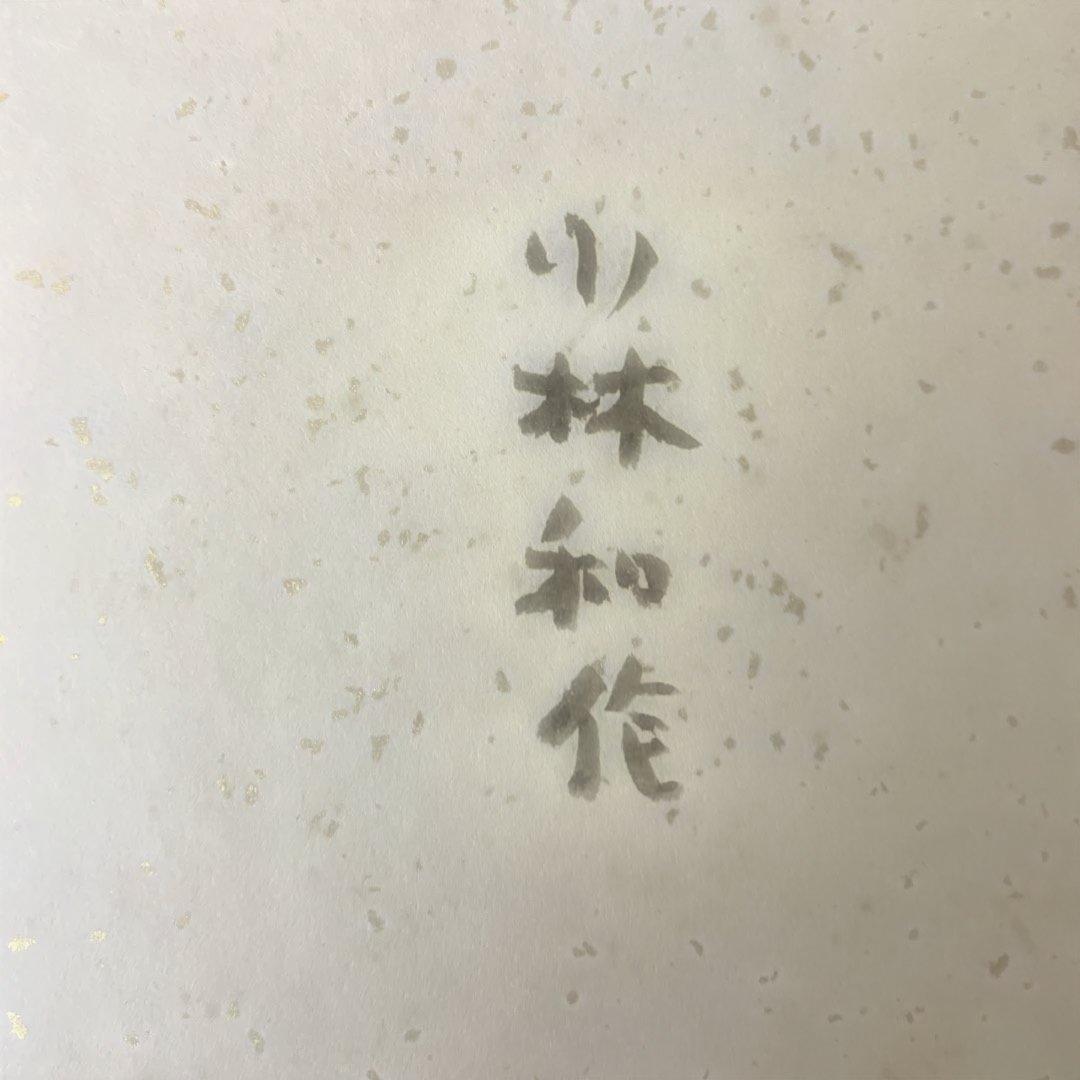 小林和作